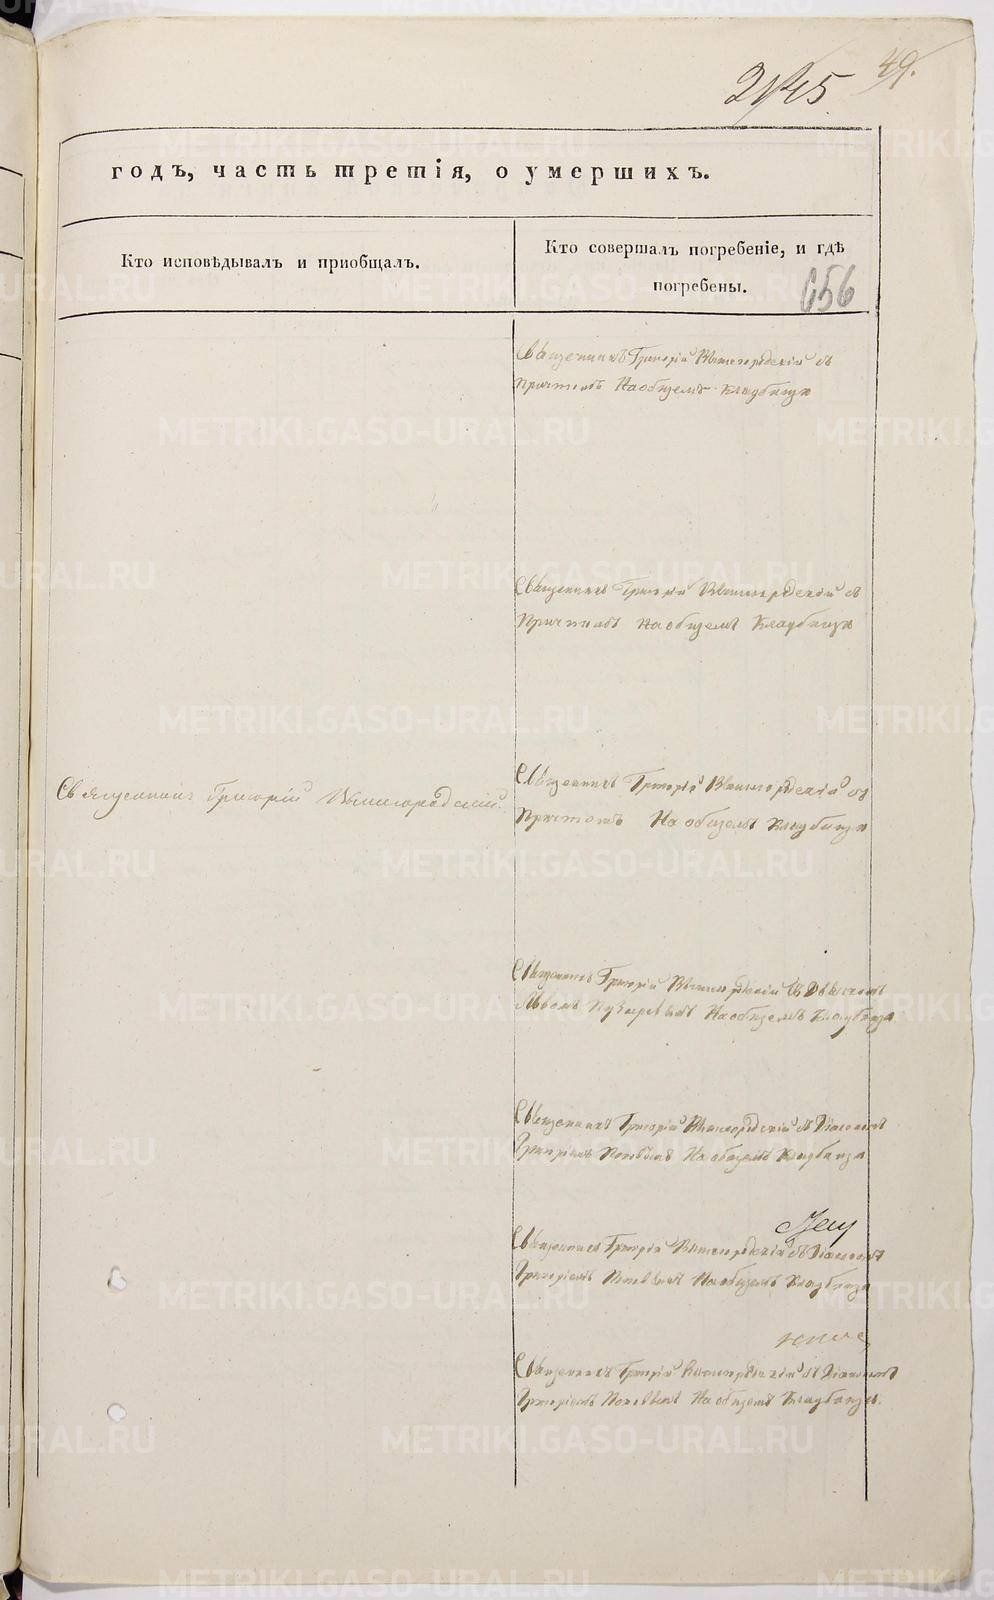 49.
годъ, часть третія, о умершихъ.
Кто исповѣдывалъ и пріобщалъ.
Кто совершалъ погребеніе, и гдѣ
погребены.
656
Священникъ Григорій Вышегородскій съ
Причтомъ На общемъ Кладбищѣ
Священникъ Григорій Вышегородскій съ
Причтомъ На общемъ Кладбищѣ
Священникъ Григорій Вышегородскій
Священникъ Григорій Вышегородскій съ
Причтомъ На общемъ Кладбищѣ
Священникъ Григорій Вышегородскій съ
Львомъ На общемъ Кладбищѣ
Священникъ Григорій Вышегородскій съ Діакономъ
Григоріемъ Поповымъ На общемъ Кладбищѣ
Священникъ Григорій Вышегородскій съ Діакономъ
Григоріемъ Поповымъ На общемъ Кладбищѣ
Священникъ Григорій Вышегородскій съ Діакономъ
Григоріемъ Поповымъ На общемъ Кладбищѣ.
METRIKI.GASO-URAL.RU